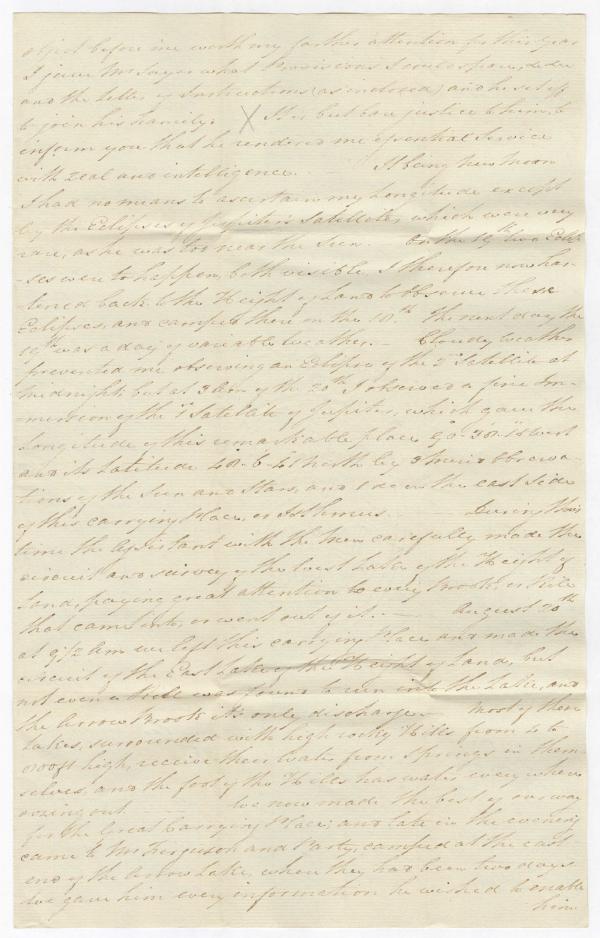 object before me worth my farther attention for this Year
I gave Mr Sayer what Provisions I could spare,
and the letter of Instructions (as inclosed) and he set off
to join his Family. X It is but bare justice to him, to
inform you that he rendered me essential Service
with zeal and intelligence. It being New Moon
I had no means to ascertain my Longitude except
by the Eclipses of Jupiter's Satellites, which were very
rare, as he was too near the Sun. On the 19th two Eclip
-ses were to happen, both visible, I therefore now has
tened back to the Height of Land to observe these
Eclipses, and camped there on the 18th The next day the
19th was a day of variable weather. – Cloudy weather
prevented me observing an Eclipse of the 2d Satellite at
Midnight but at 3 Am of the 20th I observed a fine Im-
mersion of the 1st Satellite of Jupiter, which gave the
Longitude of this remarkable place West
and its Latitude North by Observa-
tions of the Sun and Stars, and on the East Side
of this carrying Place, or Isthmus. During this
time the Assistant with the Men carefully made the
circuit and survey of the West Lake of the Height of
Land, paying great attention to every Brook, or Rill
that came into, or went out of it. – August 20th
at 9 1/2 Am we left this carrying Place and made the
circuit of the East Lake of the Height of Land, but
not even a Rill was found to run into the Lake, and
the Arrow Brook its only discharge. Most of these
Lakes, surrounded with high rocky Hills from to
ft high, receive their Water from Springs in them-
selves, and the foot of the Hills has water every where
oozing out We now made the best of our way
for the Great Carrying Place; and late in the evening
came to Mr Ferguson and Party, camped at the east
end of the Arrow Lake, where they had been two days
We gave him every information he wished to enable
him